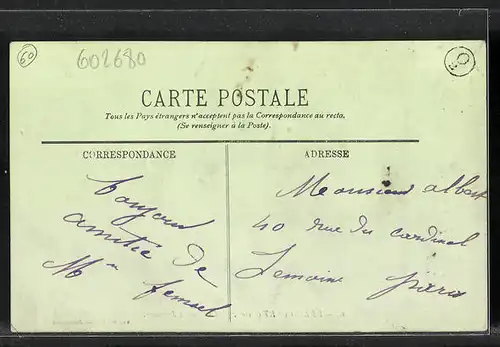 60
602680
CARTE POSTALE
Tous les Pays étrangers n'acceptent pas la Correspondance au recto.
(Se renseigner à la Poste).
CORRESPONDANCE
ADRESSE
Toujours
amitié de
Mm
Monsieur albert
40 rue du cardinal
Lemoine paris